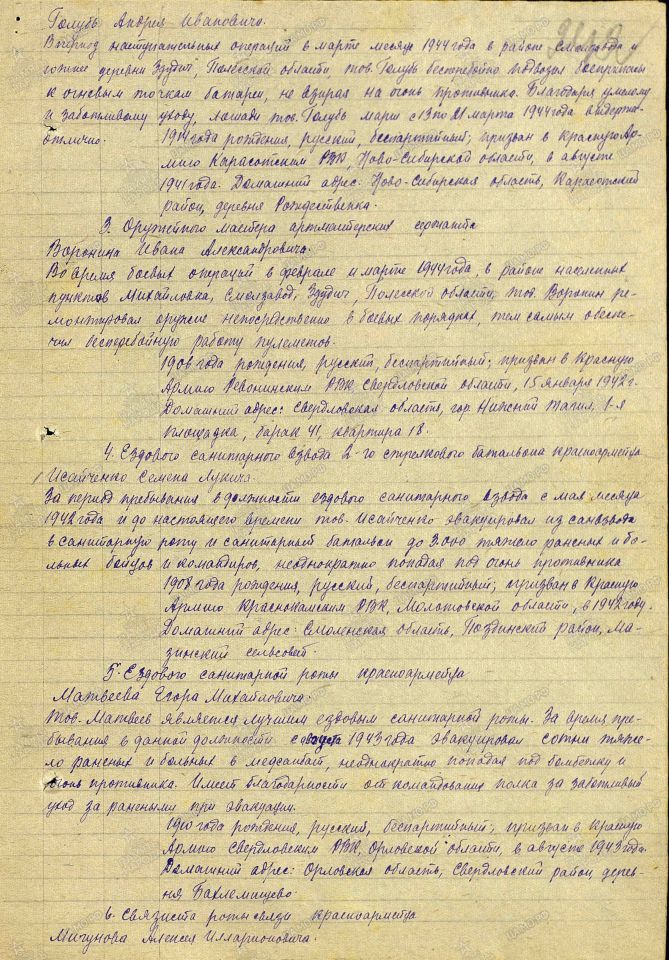 Голубь Андрея Ивановича.
В период наступательных операций в марте месяце 1944 года в районе Смолзавода и
южнее деревни Здудичи, Полесской области, тов. Голубь бесперебойно подвозил боеприпасы
к огневым точкам батареи, не взирая на огонь противника. Благодаря умелому
и заботливому уходу, лошади тов. Голубь марш с 13 по 21 марта 1944 года выдержали
отлично.
1914 года рождения, русский, беспартийный; призван в Красную Ар-
мию Карасокским РВК, Ново-Сибирской области, в августе
1941 года. Домашний адрес: Ново-Сибирская область,
район, деревня Рождественка.
3. Оружейного мастера артмастерских сержанта
Воронина Ивана Александровича.
Во время боевых операций в феврале и марте 1944 года, в районе населенных
пунктов Михайловка, Смолзавод, Здудич, Полесской области, тов. Воронин ре-
монтировал оружие непосредственно в боевых порядках, тем самым обеспе-
чил бесперебойную работу пулеметов.
1906 года рождения, русский, беспартийный; призван в Красную
Армию РВК, Свердловской области, 15 января 1942 г.
Домашний адрес: Свердловская область, гор. Нижний Тагил, 1-я
площадка, барак 41, квартира 18.
4. Ездового санитарного взвода 2-го стрелкового батальона красноармейца
Исайченко Семена Лукича.
За период пребывания в должности ездового санитарного взвода с мая месяца
1942 года и до настоящего времени тов. Исайченко эвакуировал из санвзвода
в санитарную роту и санитарный батальон до 2.000 тяжело раненых и бо-
льных бойцов и командиров, неоднократно попадая под огонь противника
1908 года рождения, русский, беспартийный; призван в Красную
Армию Краснокамским РВК, Молотовской области, в 1942 году.
Домашний адрес: Смоленская область, район, Ма-
зинский сельсовет.
5. Ездового санитарной роты красноармейца
Матвеева Егора Михайловича.
Тов. Матвеев является лучшим ездовым санитарной роты. За время пре-
бывания в данной должности с 1943 года эвакуировал сотни тяже-
ло раненых и больных в медсанбат, неоднократно попадая под бомбежку и
огонь противника. Имеет благодарности от командования полка за заботливый
уход за ранеными при эвакуации.
1900 года рождения, русский, беспартийный; призван в Красную
Армию Свердловским РВК, Орловской области, в августе 1943 года.
Домашний адрес: Орловская область, Свердловский район, дерев-
ня
6. Связиста роты связи красноармейца
Мичунова Алексея Илларионовича.